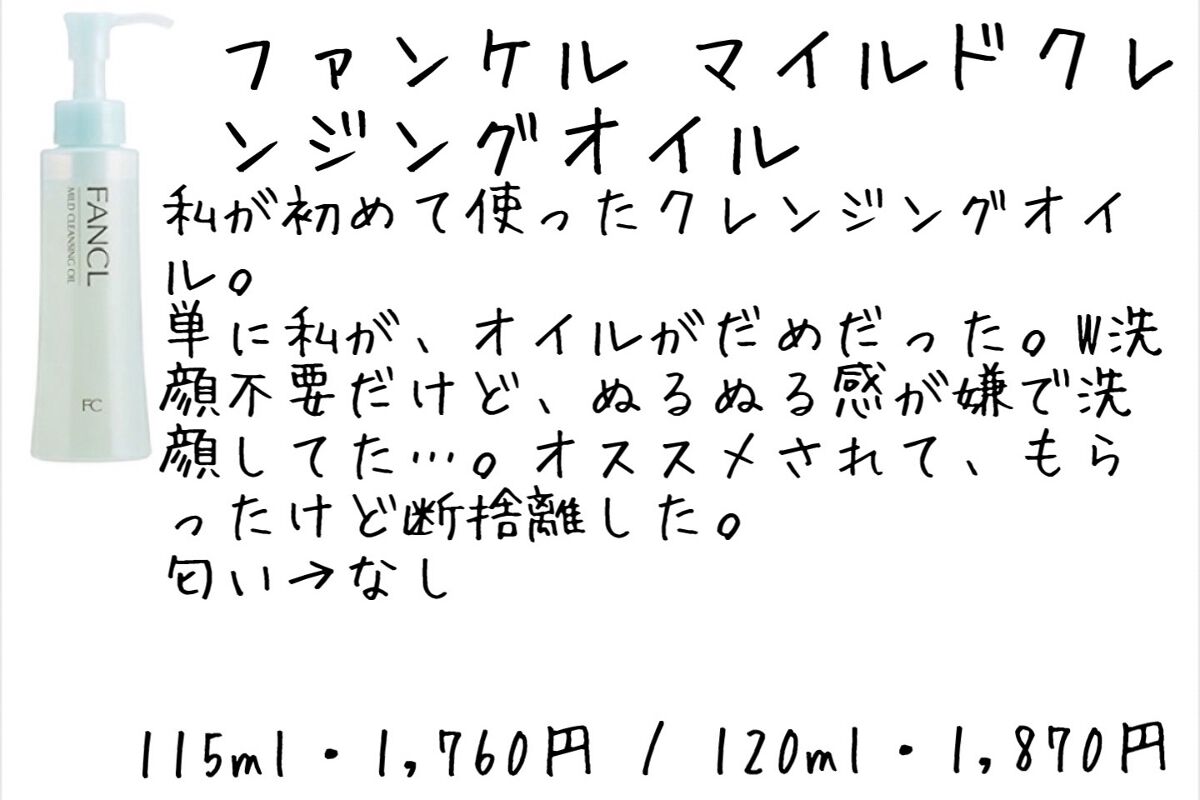 ファンケル マイルドクレ
ンジングオイル
私が初めて使ったクレンジングオイ
ル。
単に私が、オイルがだめだった。W洗
顔不要だけど、ぬるぬる感が嫌で洗
顔してた…。オススメされて、もら
ったけど断捨離した。
匂い→なし
115ml・1,760円 / 120ml・1,870円
FANCL
MILD CLEANSING OIL
FC